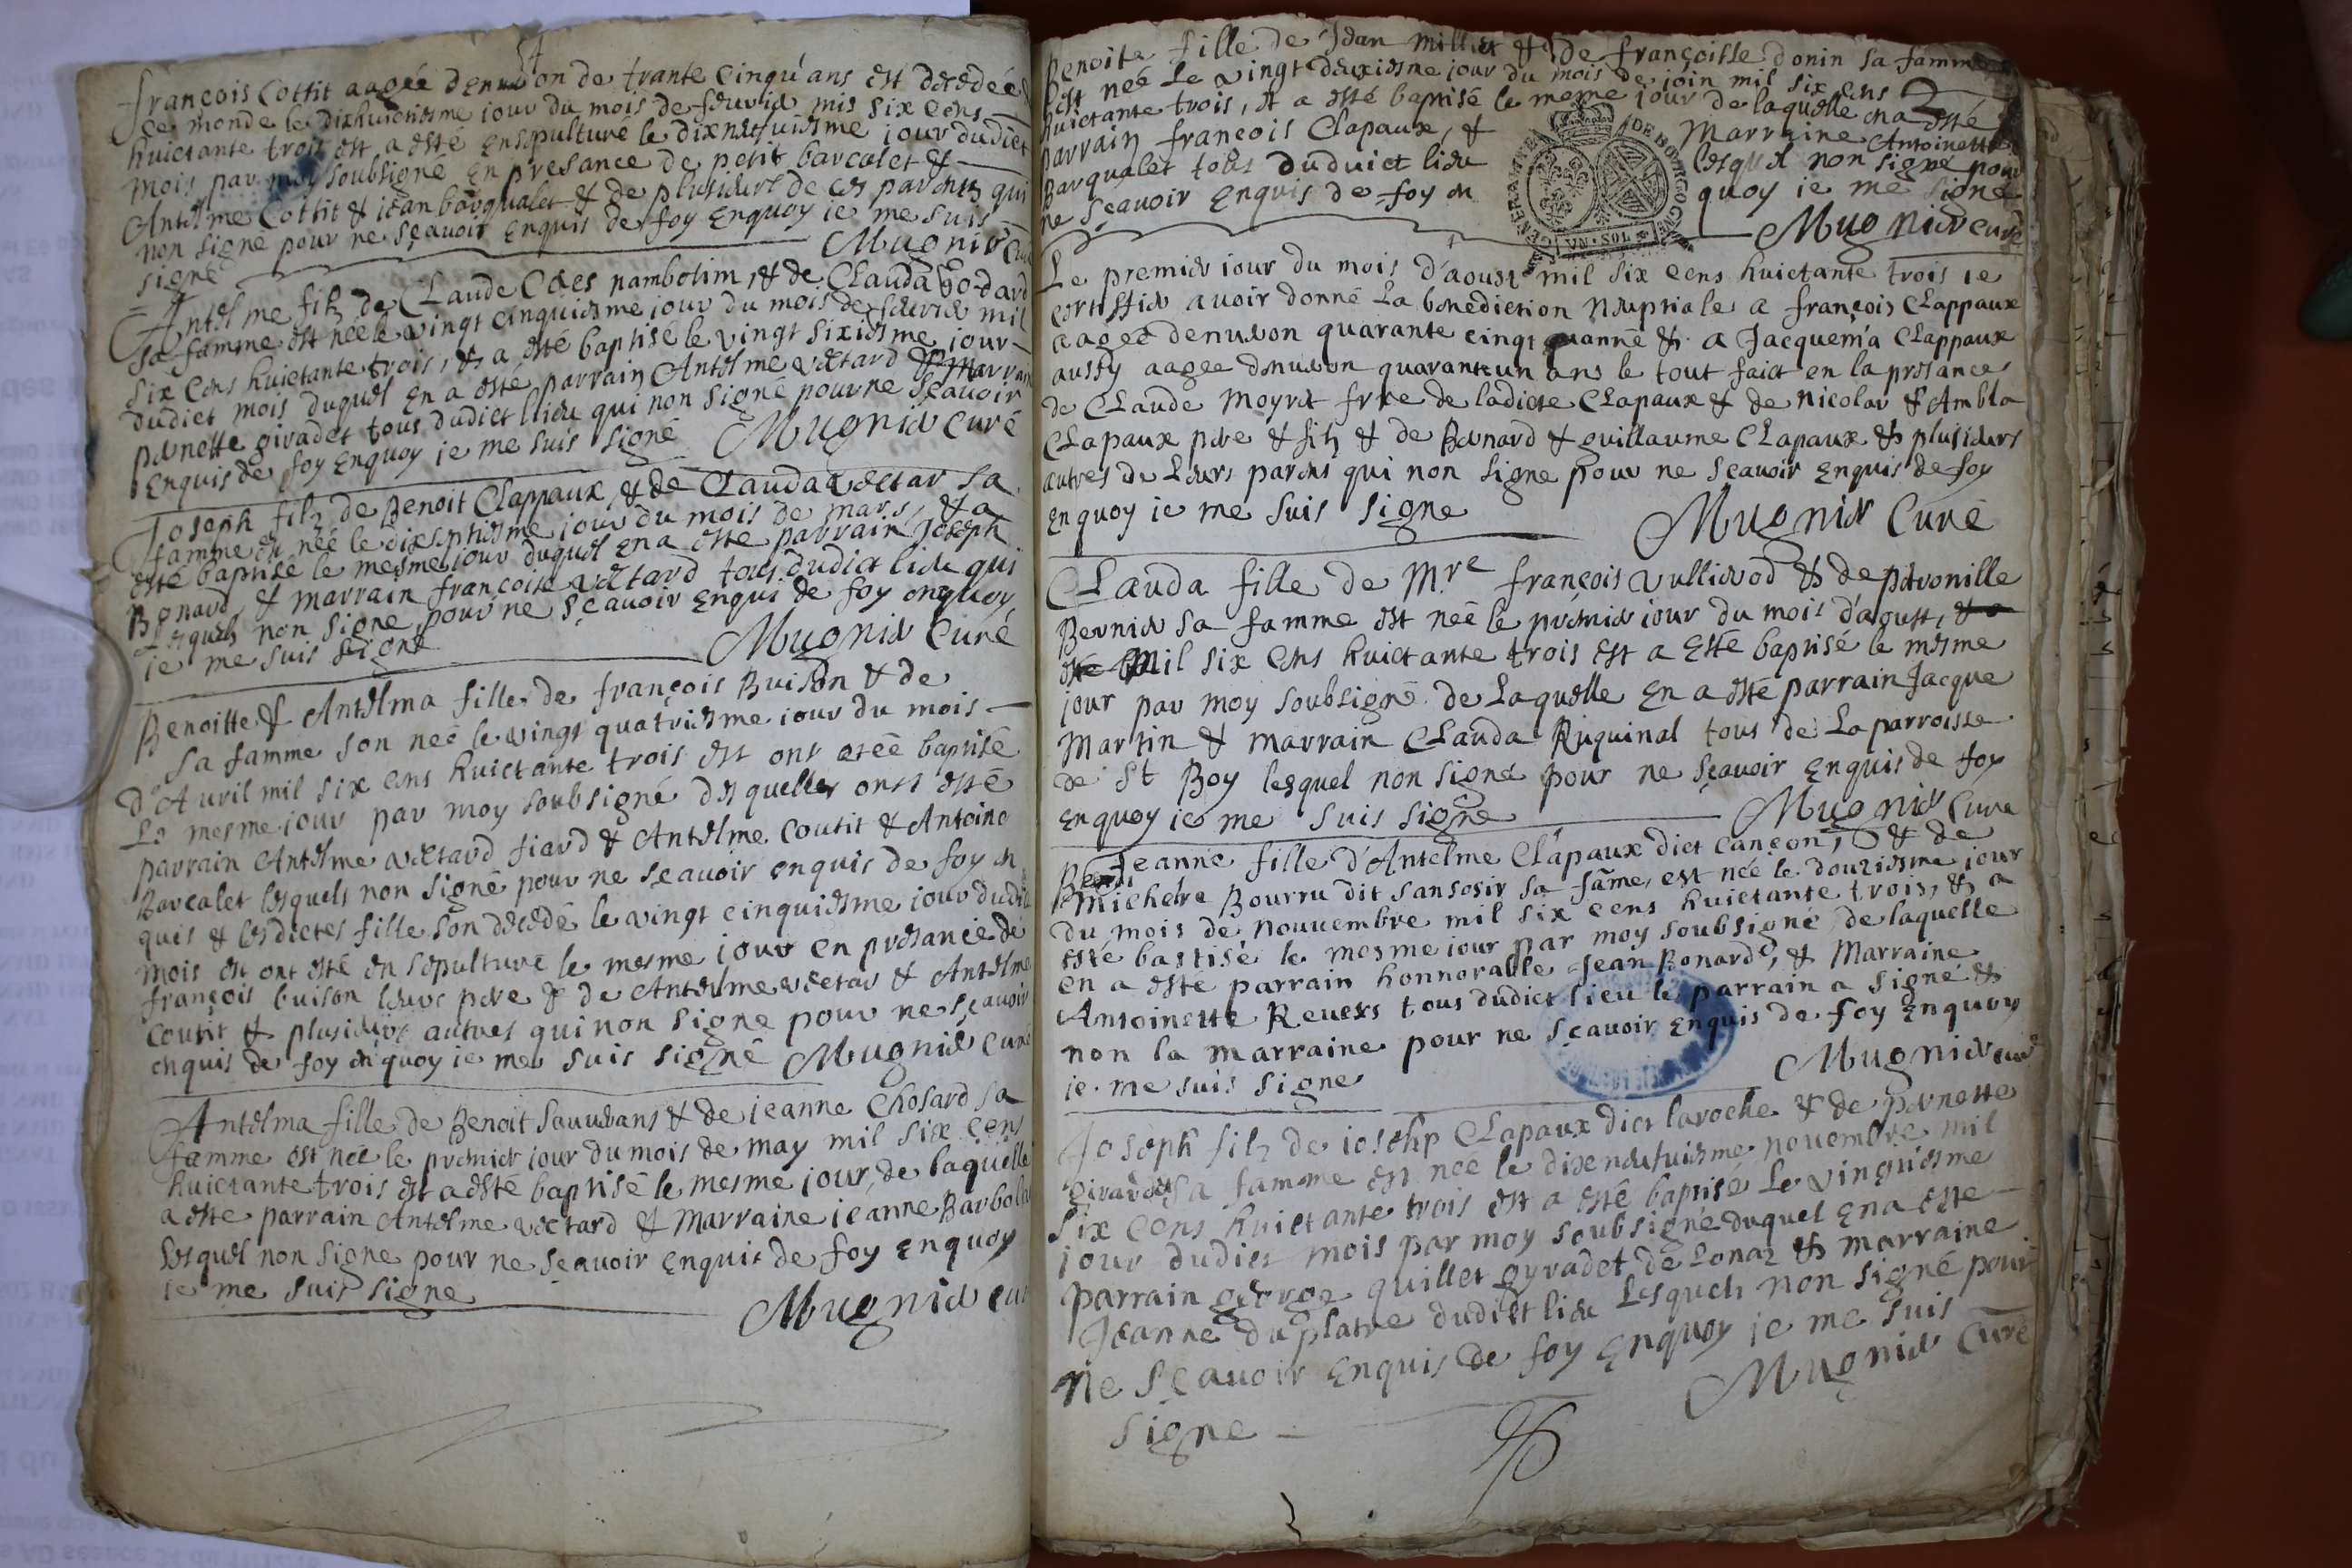 françois Cottit aagée denuiron de trante cinqu'ans est decedée
ce monde le dixhuictiesme iour du mois de feuvrier mis six cens
huictante trois est a esté ensepulturé le dixneufuiesme iour dudict
mois par moy soubsigné en presance de petit barcalet &
Antelme Cottit & iean barqualet & de plusieurs de ces parents qui
non signe pour ne sçauoir enquis de foy enquoy ie me suis
signe Mugnier Curé
Antelme filz de Claude nambotim & de Clauda Godard
sa famme est née le vingt cinquiesme iour du mois de feuvrier mil
six cens huictante trois, & a esté baptisé le vingt sixiesme iour
dudict mois duquel en a esté parrain Antelme vectard & Marraine
pernette giradet tous dudict lieu qui non signé pour ne sçauoir
enquis de foy enquoy ie me suis signé Mugnier curé
Joseph filz de Benoit Clappaux & de Clauda vectar sa
famme est née le dixseptiesme iour du mois de mars, & a
esté baptisé le mesme iour duquel en a esté parrain Joseph
Bonard, & marrain françoise vectard tous dudict lieu qui
lesquels non signe pour ne sçauoir enqui de foy enquoy
ie me suis signé Mugnier Curé
Benoitte & Antelma fille de françois Buison & de
sa famme son neé le vingt quatriesme iour du mois
d'Auril mil six cens huictante trois est ont esteé baptisé
Le mesme iour par moy soubsigné desquelles onst esté
parrain Antelme vectard fiard & Antelme Coutit & Antoine
Barcalet lesquels non signé pour ne sçauoir enquis de foy en
quis & lesdictes fille son decedé le vingt cinquiesme iour dudict
mois est ont esté en sepulture le mesme iour en presance de
françois buison leurs pere & de Antelme vectar & Antelme
Coutit & plusieurs autres qui non signe pour ne sçauoir
enquis de foy enquoy ie me suis signé Mugnier Curé
Antelma fille de Benoit Sauuans & de ieanne Chosard sa
famme est neé le premier iour du mois de may mil six cens
huictante trois est a esté baptisé le mesme iour, de laquelle
a esté parrain Antelme vectard & Marraine ieanne
lesquel non signe pour ne sçauoir enquis de foy enquoy
ie me suis signe Mugnier cur
Benoite fille de Jean Milliet & de françoisse donin sa famme
est neé le vingt deuxiesme iour du mois de join mil six cens
huictante trois, est a esté baptisé le mesme iour de laquelle ena esté
parrain françois Clapaux, & Marraine Antoinette
Barqualet tous duduict lieu lesquel non signé pour
ne sçauoir enquis de foy en quoy ie me signe
Mugnier curé
GENERALITE DE BOVRGOGNE
VN · SOL
Le premier iour du mois d'aoust mil six cens huictante trois ie
certiffie auoir donné la benediction nuptiale a françois Clappaux
aagée denuiron quarante cinqt quanné & a Jacquema Clappaux
aussy aagee denuiron quarante un ans le tout faict en la presance
de Claude Moyret frere de ladicte Clapaux & de nicolas & Ambla
Clapaux pere & filz & de Benard & guillaume Clapaux & plusieurs
autres de leurs parens qui non signe pour ne sçauoir enquis de foy
enquoy ie me suis signe Mugnier Curé
Clauda fille de Mre françois vullierod & de peronille
Bernier sa famme est neé le premier iour du mois d'aoust, & a
esté mil six cens huictante trois est a esté baptisé le mesme
jour par moy soubsigné de laquelle en a esté parrain Jacque
Martin & marrain Clauda Ruquinal tous de la parroisse
de St Boy lesquel non signé pour ne sçauoir enquis de foy
enquoy ie me suis signe Mugnier Cure
Jeanne fille d'Antelme Clapaux dict cançon, & de
Michére Bourru dit sansosir sa fãme, est née le douziesme iour
du mois de nouuembre mil six cens huictante trois, & a
esté bastisé le mesme iour par moy soubsigné de laquelle
en a esté parrain honnorable Jean Bonard, & Marraine
Antoinette Reuers tous dudict lieu le parrain a signé &
non la marraine pour ne sçauoir enquis de foy enquoy
ie me suis signe Mugnier curé
Joseph filz de iosehp Clapaux dict laroche & de pernette
giradet sa famme est neé le dixneufuiesme nouembre mil
six cens huictante trois est a esté baptisé le vinguiesme
iour dudict mois par moy soubsigné duquel ena esté
parrain george quillet gyradet de Lonaz & marraine
Jeanne duplatre dudict lieu lesquels non signé pour
ne sçauoir enquis de foy enquoy ie me suis
signe Mugnier Curé